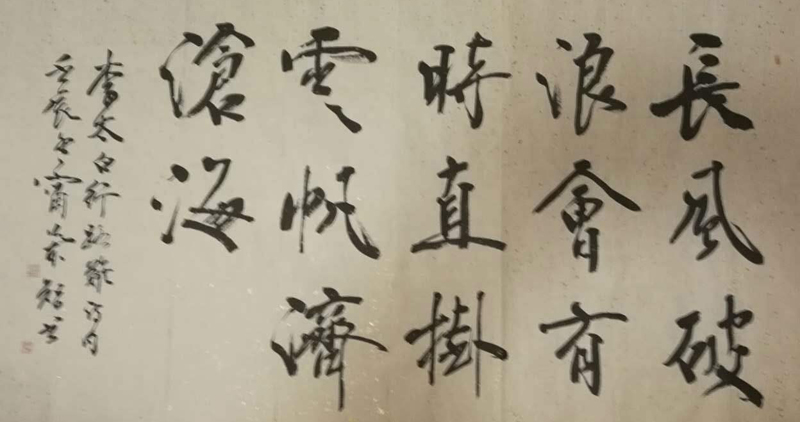 長風破
浪會有
時直掛
雲帆濟
滄海
李太白行路難詩句
壬辰冬